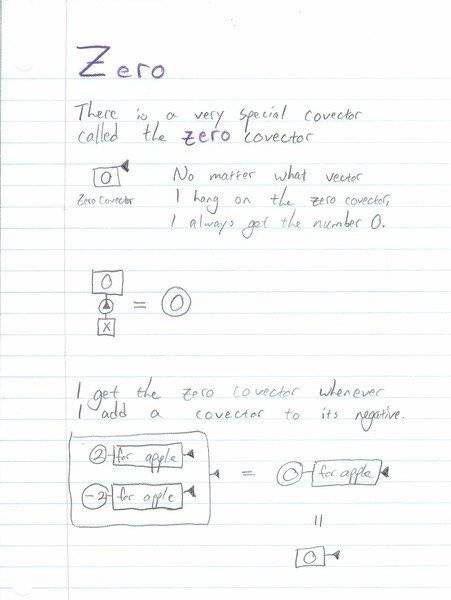 Zero
There is a very special covector
called the zero covector
0
Zero Covector
No matter what vector
I hang on the zero covector,
I always get the number 0.
0
= 0
X
I get the zero covector whenever
I add a covector to its negative.
2 for apple
-2 for apple
= 0 for apple
=
0